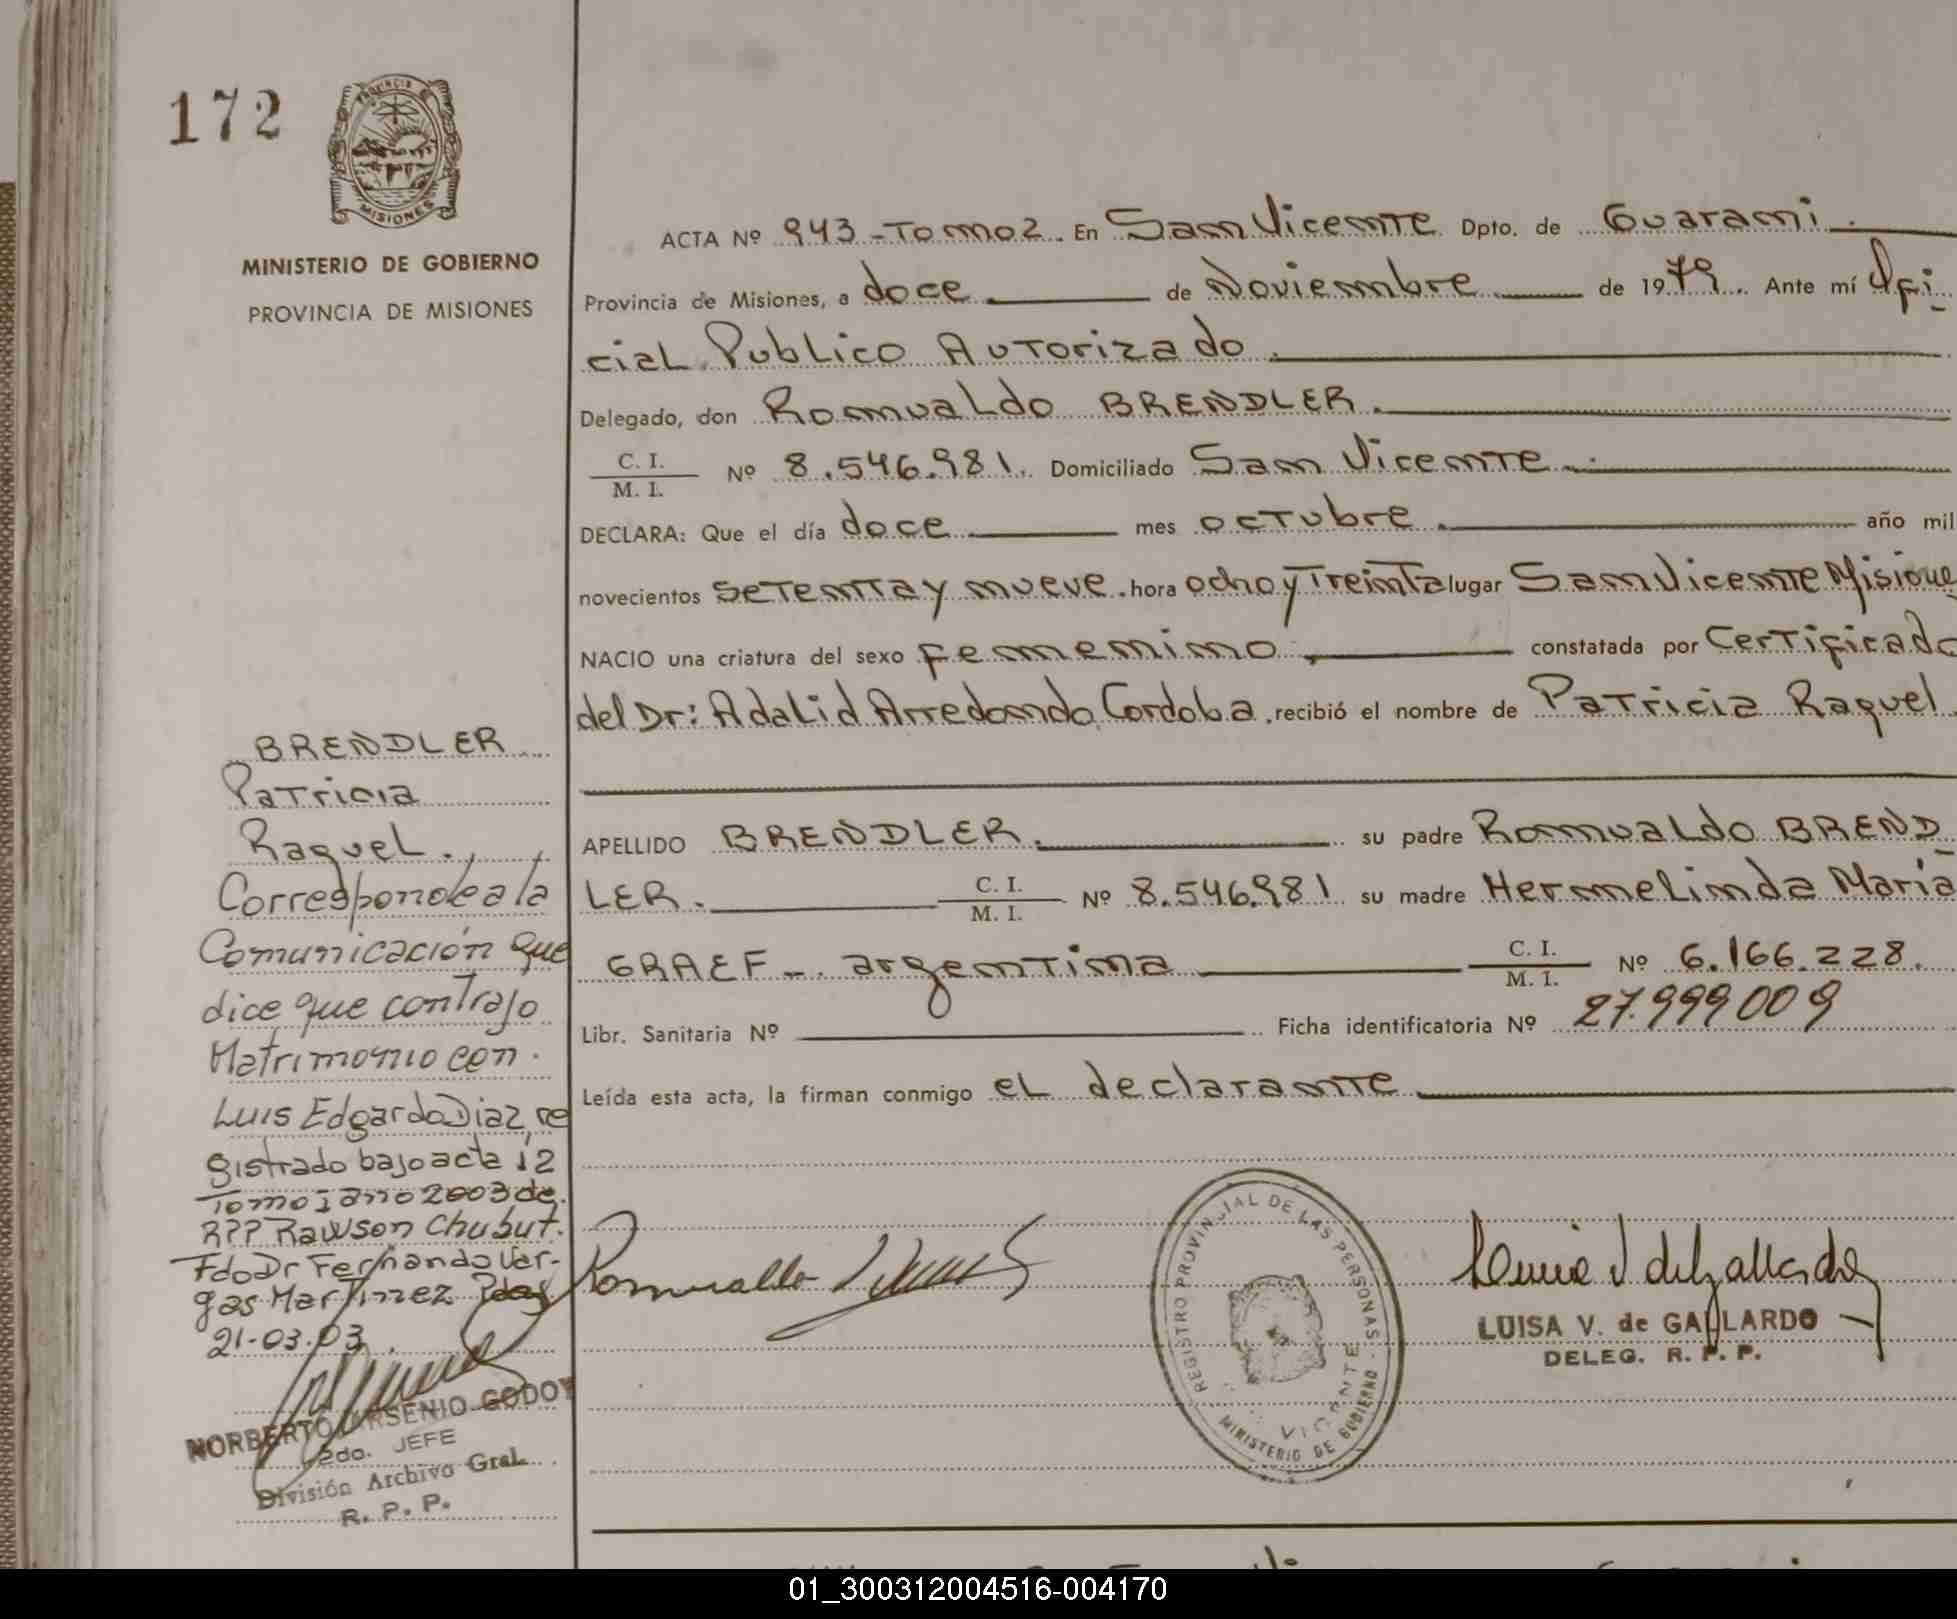 172
PROVINCIA DE
MISIONES
MINISTERIO DE GOBIERNO
PROVINCIA DE MISIONES
ACTA Nº 943 - Tomo 2. En San Vicente Dpto. de Guarani.
Provincia de Misiones, a doce de Noviembre de 1979. Ante mí Ofi
cial Publico Autorizado
Delegado, don Romualdo BRENDLER.
C. I.
M. I. Nº 8.546.981. Domiciliado San Vicente
DECLARA: Que el día doce mes octubre. año mil
novecientos setenta y nueve. hora ocho y treinta lugar San Vicente Misione
NACIO una criatura del sexo femenino, constatada por Certificado
del Dr: Adalid Arredondo Cordoba, recibió el nombre de Patricia Raquel
APELLIDO BRENDLER. su padre Romualdo BREND
LER. C. I.
M. I. Nº 8.546.981 su madre Hermelinda María
GRAEF - argentina C. I.
M. I. Nº 6.166.228.
Libr. Sanitaria Nº Ficha identificatoria Nº 27.999009
Leída esta acta, la firman conmigo el declarante
BRENDLER
Patricia
Raquel.
Corresponde a la
Comunicación que
dice que contrajo
Matrimonio con
Luis Edgardo Diaz, re
gistrado bajo acta 12
Tomo I año 2003 de
RPP Rawson Chubut.
Fdo Dr Fernando Var-
gas Martinez
21-03.03
NORBERTO ARSENIO GODOY
2do. JEFE
División Archivo Gral.
R. P. P.
Romualdo
REGISTRO PROVINCIAL DE LAS PERSONAS
VICENTE
MINISTERIO DE GOBIERNO
Luisa V de Gallardo
LUISA V. de GALLARDO
DELEG. R. P. P.
01_300312004516-004170